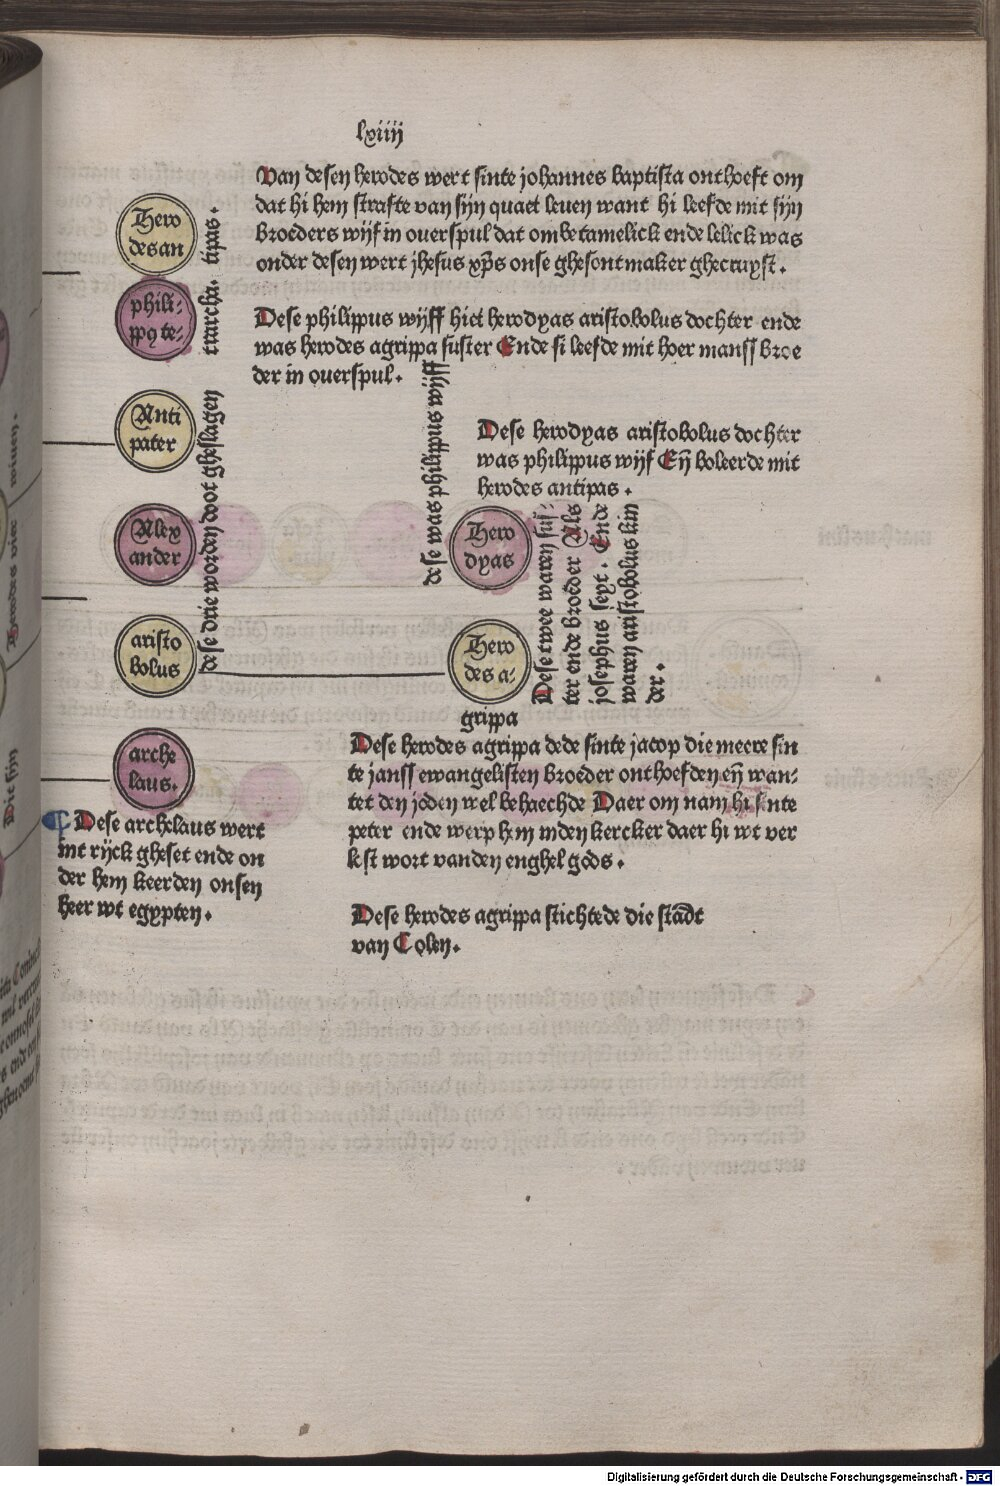 lxiiij
Van desen herodes wert sinte johannes baptista onthoeft om
dat hi hem strafte van sijn quaet leuen want hi leefde mit sijn
broeders wijf in ouerspul dat ombetamelick ende lelick was
onder desen wert jhesus xp̄s onse ghesontmaker ghecruyst.
Hero
desan
tipas.
phili-
ppꝯ te-
trarcha.
Dese philippus wijff hiet herodyas aristobolus dochter ende
was herodes agrippa suster Ende si leefde mit hoer manss broe
der in ouerspul.
Anti
pater
Alex
ander
aristo
bolus
dese drie worden doot gheslagen
dese was philippus wijff
Dese herodyas aristobolus dochter
was philippus wijf Eñ boleerde mit
herodes antipas.
Hero
dyas
Hero
des a-
grippa
Dese twee waren sus-
ter ende broeder Als
josephus seyt. Ende
waren aristobolus kin
der.
arche
laus.
Dese archelaus wert
int rijck gheset ende on
der hem keerden onsen
heer wt egypten.
Dese herodes agrippa dede sinte jacop die meere sin
te janss ewangelisten broeder onthoefden eñ wan-
tet den joden wel behaechde Daer om nam hi sinte
peter ende werp hem inden kercker daer hi wt ver
lest wort vanden enghel gods.
Dese herodes agrippa stichtede die stadt
van Colen.
Digitalisierung gefördert durch die Deutsche Forschungsgemeinschaft - DFG